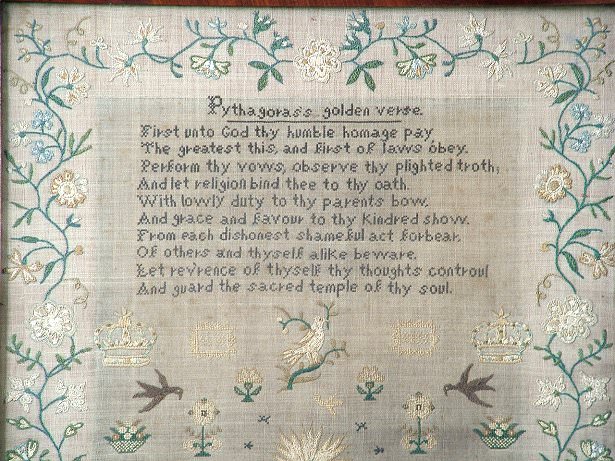 Pythagoras's golden verse.
First unto God thy humble homage pay
The greatest this, and first of laws obey.
Perform thy vows, observe thy plighted troth;
And let religion bind thee to thy oath.
With lowly duty to thy parents bow.
And grace and favour to thy kindred show.
From each dishonest shameful act forbear.
Of others and thyself alike beware.
Let rev'rence of thyself thy thoughts controul
And guard the sacred temple of thy soul.